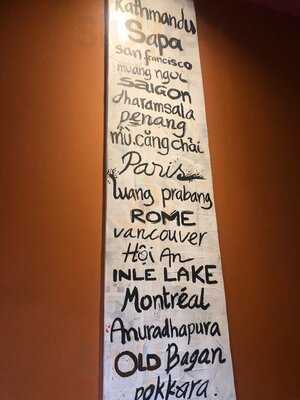 Kathmandu
Sapa
san francisco
muang ngoi
SAIGON
dharamsala
penang
mù.căng chải
Paris
luang prabang
ROME
vancouver
Hội An
INLE LAKE
Montréal
Anuradhapura
OLD Bagan
pokkara.